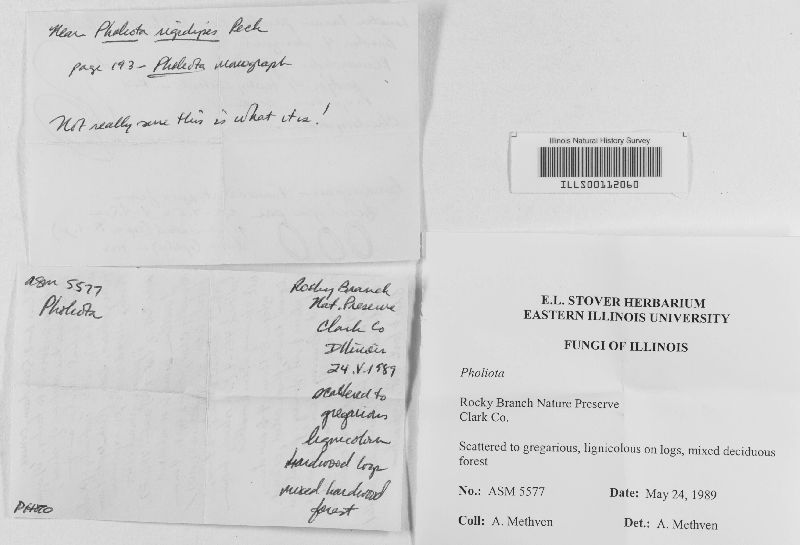 Near Pholiota rigidipes Peck
page 193 - Pholiota monograph
Not really sure this is what it is!
Illinois Natural History Survey
ILLS00112060
ASM 5577
Pholiota
Rocky Branch
Nat. Preserve
Clark Co
Illinois
24.V.1989
scattered to
gregarious
lignicolous
hardwood logs
mixed hardwood
forest
PHOTO
E.L. STOVER HERBARIUM
EASTERN ILLINOIS UNIVERSITY
FUNGI OF ILLINOIS
Pholiota
Rocky Branch Nature Preserve
Clark Co.
Scattered to gregarious, lignicolous on logs, mixed deciduous
forest
No.: ASM 5577 Date: May 24, 1989
Coll: A. Methven Det.: A. Methven